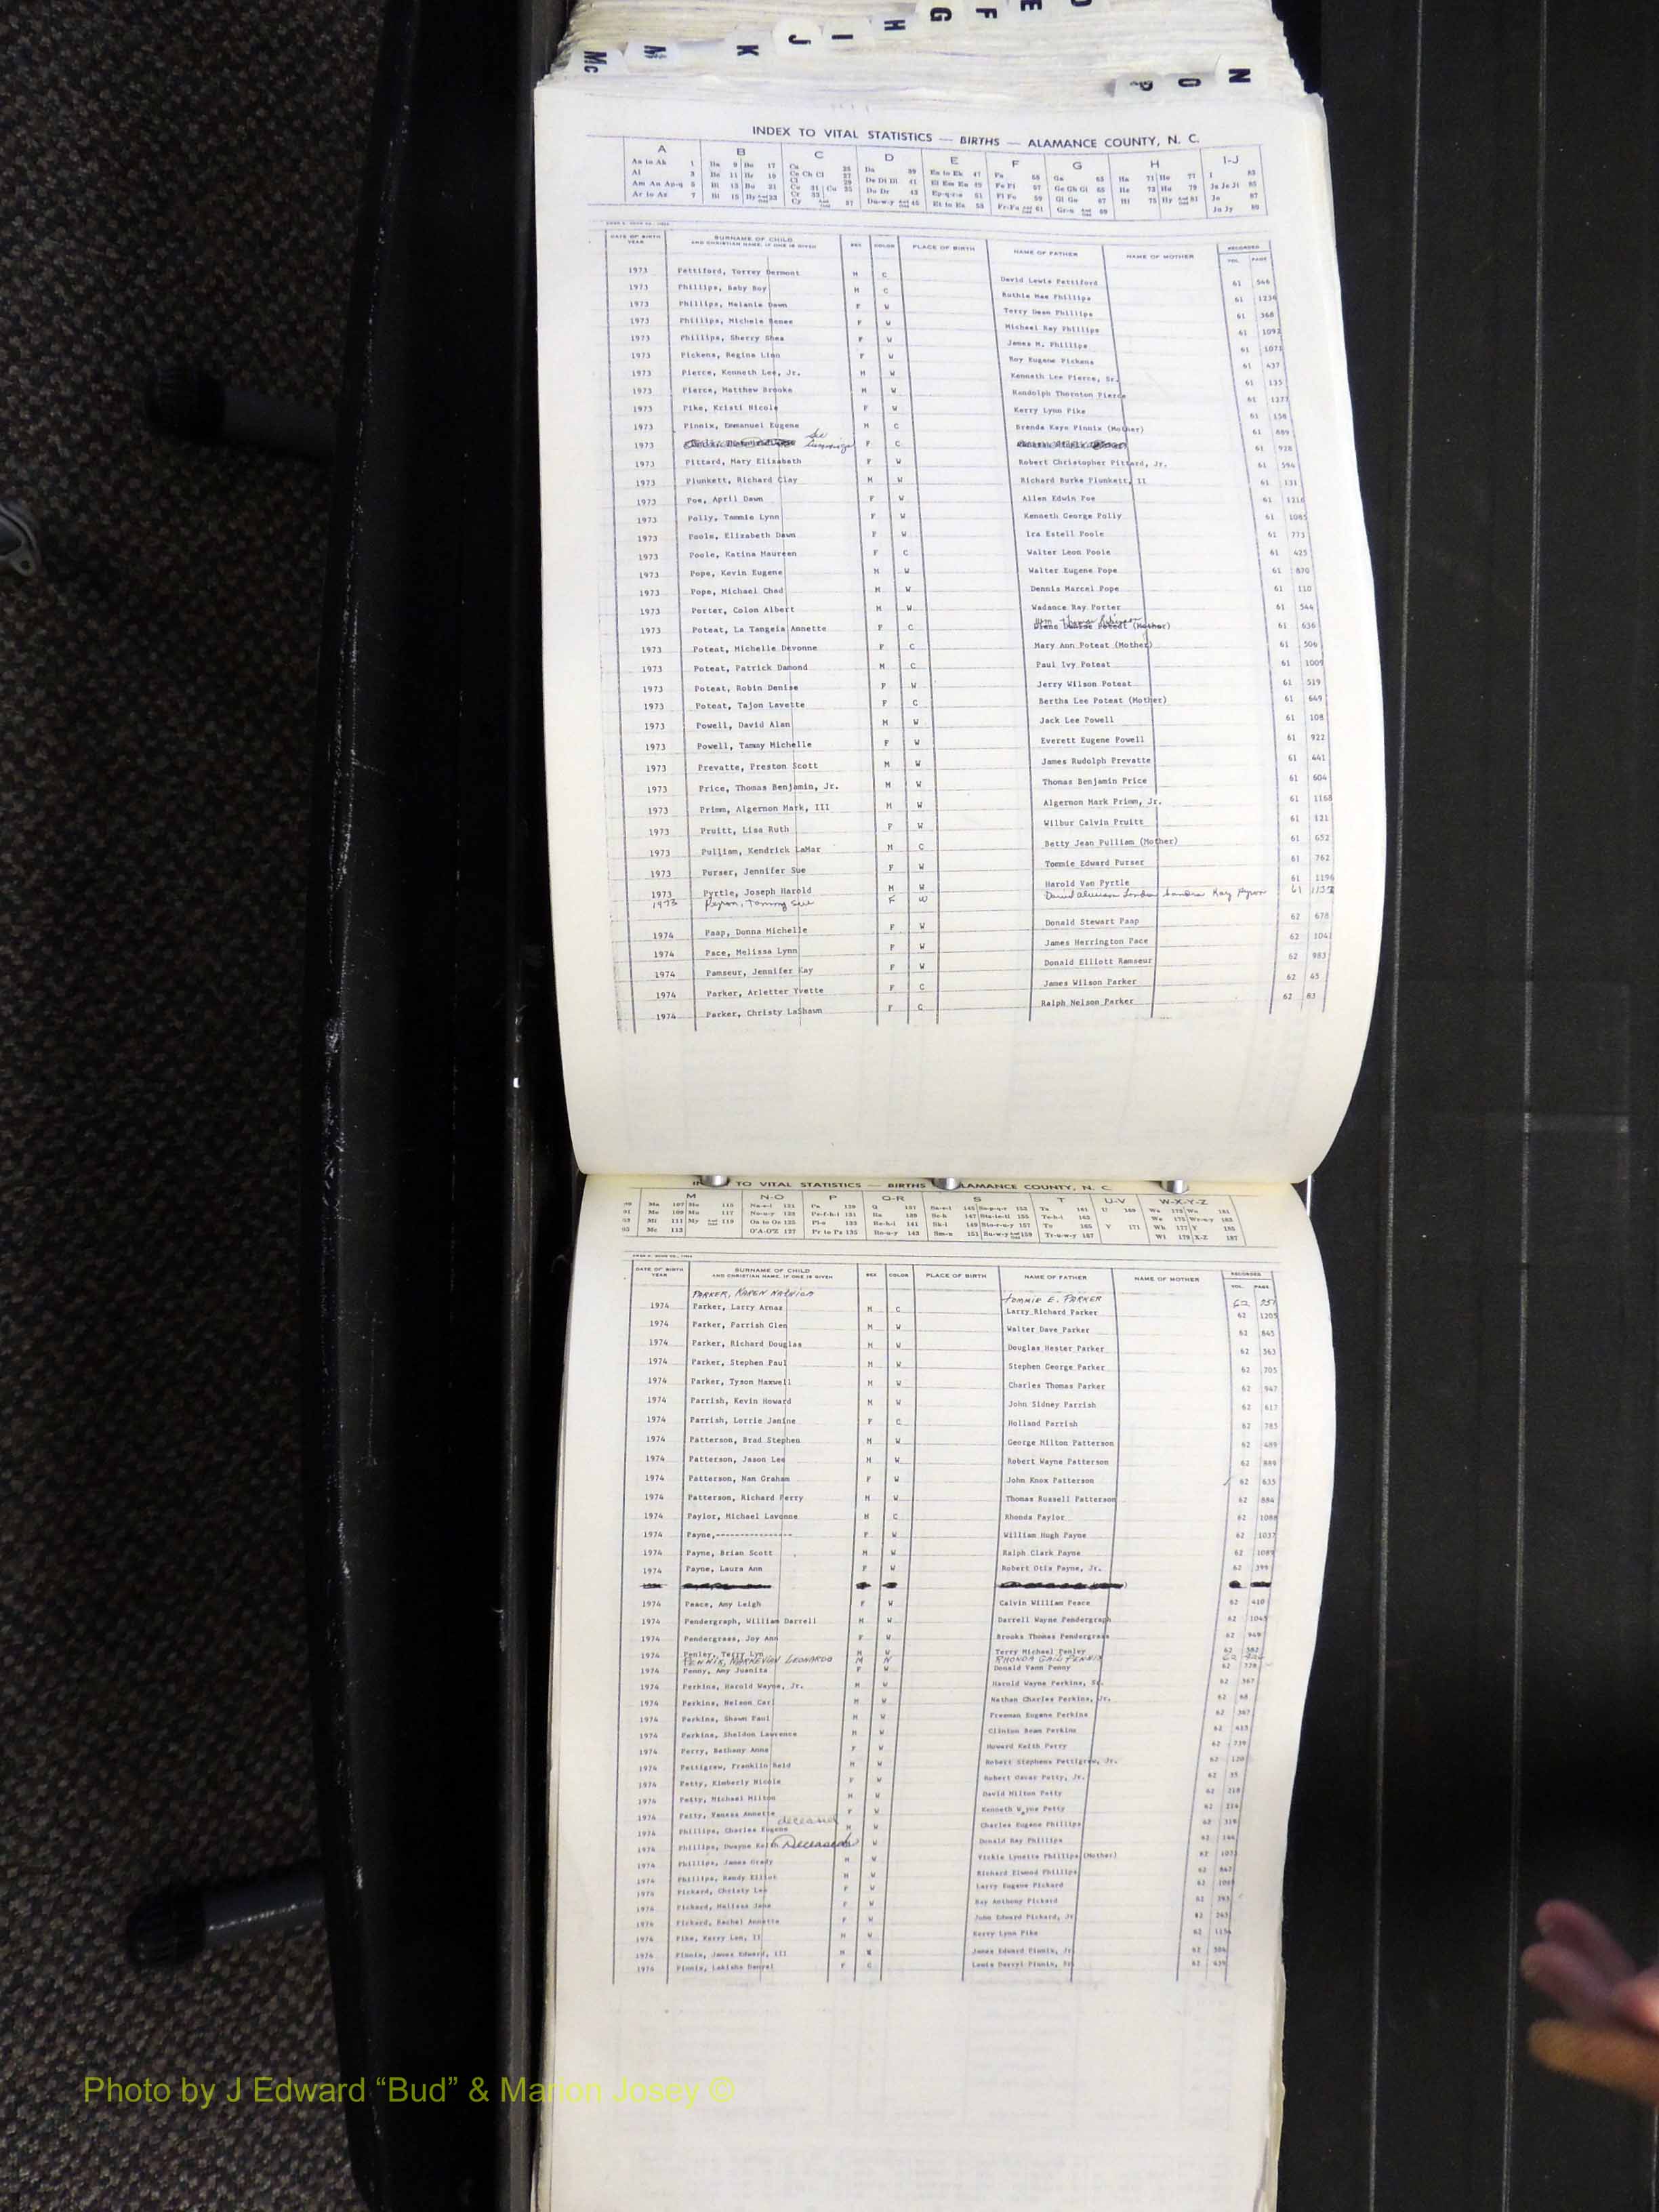 D
E
F
G
H
I
J
K
M
Mc
N
O
P
INDEX TO VITAL STATISTICS — BIRTHS — ALAMANCE COUNTY, N. C.
A B C D E F G H I-J
DATE OF BIRTH YEAR SURNAME OF CHILD AND CHRISTIAN NAME, IF ONE IS GIVEN SEX COLOR PLACE OF BIRTH NAME OF FATHER NAME OF MOTHER RECORDED VOL. PAGE
1973 Pettiford, Torrey Dermont M C David Lewis Pettiford 61 546
1973 Phillips, Baby Boy M C Ruthie Mae Phillips 61 1236
1973 Phillips, Melanie Dawn F W Terry Dean Phillips 61 368
1973 Phillips, Michele Renee F W Michael Ray Phillips 61 1092
1973 Phillips, Sherry Shea F W James M. Phillips 61 1071
1973 Pickens, Regina Linn F W Roy Eugene Pickens 61 437
1973 Pierce, Kenneth Lee, Jr. M W Kenneth Lee Pierce, Sr. 61 135
1973 Pierce, Matthew Brooke M W Randolph Thornton Pierce 61 1277
1973 Pike, Kristi Nicole F W Kerry Lynn Pike 61 158
1973 Pinnix, Emmanuel Eugene M C Brenda Kaye Pinnix (Mother) 61 889
1973 See F C 61 928
1973 Pittard, Mary Elizabeth F W Robert Christopher Pittard, Jr. 61 594
1973 Plunkett, Richard Clay M W Richard Burke Plunkett, II 61 131
1973 Poe, April Dawn F W Allen Edwin Poe 61 1216
1973 Polly, Tammie Lynn F W Kenneth George Polly 61 1085
1973 Poole, Elizabeth Dawn F W Ira Estell Poole 61 773
1973 Poole, Katina Maureen F C Walter Leon Poole 61 425
1973 Pope, Kevin Eugene M W Walter Eugene Pope 61 870
1973 Pope, Michael Chad M W Dennis Marcel Pope 61 110
1973 Porter, Colon Albert M W Wadance Ray Porter 61 544
1973 Poteat, La Tangela Annette F C Diene Denise Poteat (Mother) 61 636
1973 Poteat, Michelle Devonne F C Mary Ann Poteat (Mother) 61 506
1973 Poteat, Patrick Damond M C Paul Ivy Poteat 61 1009
1973 Poteat, Robin Denise F W Jerry Wilson Poteat 61 519
1973 Poteat, Tajon Lavette F C Bertha Lee Poteat (Mother) 61 649
1973 Powell, David Alan M W Jack Lee Powell 61 108
1973 Powell, Tammy Michelle F W Everett Eugene Powell 61 922
1973 Prevatte, Preston Scott M W James Rudolph Prevatte 61 441
1973 Price, Thomas Benjamin, Jr. M W Thomas Benjamin Price 61 604
1973 Primm, Algernon Mark, III M W Algernon Mark Primm, Jr. 61 1168
1973 Pruitt, Lisa Ruth F W Wilbur Calvin Pruitt 61 121
1973 Pulliam, Kendrick LaMar M C Betty Jean Pulliam (Mother) 61 652
1973 Purser, Jennifer Sue F W Tommie Edward Purser 61 762
1973 Pyrtle, Joseph Harold M W Harold Van Pyrtle 61 1196
1973 Pyron, Tammy Sue F W London Sandra Kay Pyron 61
1974 Paap, Donna Michelle F W Donald Stewart Paap 62 678
1974 Pace, Melissa Lynn F W James Herrington Pace 62 1041
1974 Pamseur, Jennifer Kay F W Donald Elliott Ramseur 62 983
1974 Parker, Arletter Yvette F C James Wilson Parker 62 45
1974 Parker, Christy LaShawn F C Ralph Nelson Parker 62 83
TO VITAL STATISTICS — BIRTHS ALAMANCE COUNTY, N. C.
M N-O P Q-R S T U-V W-X-Y-Z
DATE OF BIRTH YEAR SURNAME OF CHILD AND CHRISTIAN NAME, IF ONE IS GIVEN SEX COLOR PLACE OF BIRTH NAME OF FATHER NAME OF MOTHER RECORDED VOL. PAGE
PARKER, KAREN TOMMIE E. PARKER 62
1974 Parker, Larry Arnaz M C Larry Richard Parker 62 1205
1974 Parker, Parrish Glen M W Walter Dave Parker 62 845
1974 Parker, Richard Douglas M W Douglas Hester Parker 62 563
1974 Parker, Stephen Paul M W Stephen George Parker 62 705
1974 Parker, Tyson Maxwell M W Charles Thomas Parker 62 947
1974 Parrish, Kevin Howard M W John Sidney Parrish 62 617
1974 Parrish, Lorrie Janine F C Holland Parrish 62 785
1974 Patterson, Brad Stephen M W George Milton Patterson 62 489
1974 Patterson, Jason Lee M W Robert Wayne Patterson 62 889
1974 Patterson, Nan Graham F W John Knox Patterson 62 635
1974 Patterson, Richard Perry M W Thomas Russell Patterson 62 884
1974 Paylor, Michael Lavonne M C Rhonda Paylor 62 1088
1974 Payne,--------------- F W William Hugh Payne 62 1037
1974 Payne, Brian Scott M W Ralph Clark Payne 62 1089
1974 Payne, Laura Ann F W Robert Otis Payne, Jr. 62 399
1974 Peace, Amy Leigh F W Calvin William Peace 62 410
1974 Pendergraph, William Darrell M W Darrell Wayne Pendergraph 62 1045
1974 Pendergrass, Joy Ann F W Brooks Thomas Pendergrass 62 948
1974 Penley, Terry Lyn M W Terry Michael Penley 62 582
PENNIX, MARKEVIAN LEONARDO M N RHONDA GAIL PENNIX 62
1974 Penny, Amy Juanita F W Donald Vann Penny 62 778
1974 Perkins, Harold Wayne, Jr. M W Harold Wayne Perkins, Sr. 62 367
1974 Perkins, Nelson Carl M W Nathan Charles Perkins, Jr. 62 68
1974 Perkins, Shawn Paul M W Freeman Eugene Perkins 62 367
1974 Perkins, Sheldon Lawrence M W Clinton Beam Perkins 62 415
1974 Perry, Bethany Anne F W Howard Keith Perry 62 739
1974 Pettigrew, Franklin Reid M W Robert Stephens Pettigrew, Jr. 62 120
1974 Petty, Kimberly Nicole F W Robert Oscar Petty, Jr. 62 35
1974 Petty, Michael Milton M W David Milton Petty 62 218
1974 Petty, Vanesa Annette F W Kenneth Wayne Petty 62 214
1974 Phillips, Charles Eugene deceased M W Charles Eugene Phillips 62 319
1974 Phillips, Dwayne Keith Deceased W Donald Ray Phillips 62 144
1974 Phillips, James Grady M W Vickie Lynette Phillips (Mother) 62
1974 Phillips, Randy Elliot M W Richard Elwood Phillips 62 847
1974 Pickard, Christy Lee F W Larry Eugene Pickard 62
1974 Pickard, Melissa Jane F W Ray Anthony Pickard 62 393
1974 Pickard, Rachel Annette F W John Edward Pickard, Jr. 62 263
1974 Pike, Kerry Lon, II M W Kerry Lynn Pike 62
1974 Pinnix, James Edward, III M James Edward Pinnix, Jr. 62 504
1974 Pinnix, Lakisha Danyel F C Lewis Darryl Pinnix, Sr. 62 439
Photo by J Edward “Bud” & Marion Josey ©